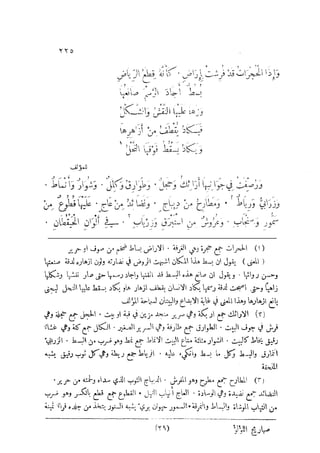 ٢٢٥
وَإِذَا الْحُجُرَاتُ قَدْ فُرِشَتْ بِإِرَاضٍ . كَأَنَّهُ قِطَعُ الرِّيَاضِ
بُسُطٌ أَجَادَ الرَّسْمَ صَانِعُهَا
وَزَهَا عَلَيْهَا النَّقْشُ وَالشَّكْلُ
فَيَكَادُ يُقْطَفُ مِنْ أَزَاهِرِهَا
وَيَكَادُ يَسْقُطُ فَوْقَهَا النَّحْلُ ١
للمؤلف
وَرُصِّفَتْ فِي جَوَانِبِهَا أَرَائِكُ وَحِجَلٌ . وَطَوَارِقُ وَكِلَلٌ . وَشَوَارٌ وَأَنْمَاطٌ .
وَزَرَابِيُّ وَرِيَاطٌ ٢ . وَمَطَارِحُ مِنْ دِيبَاجٍ . وَنَضَائِدُ مِنْ عَاجٍ . عَلَيْهَا قُطُوعٌ مِنْ
سَمُّورٍ وَسِنْجَابٍ . وَعُرُوشٌ مِنْ اسْتَبْرَقٍ وَزِرْيَابٍ ٣ . فِي أَلْوَانِ
(١) الحجرات جمع حجرة وهي الغرفة . الاراض بساط ضخم من صوف او حرير
(المعنى) يقول ان بسط هذا المكان اشبهت الروض في نضارته ولون ازهاره لدقة صنعتها
وحسن روائها . ويقول ان صانع هذه البسط قد اتقنها واجاد رسمها حتى صار نقشها وشكلها
زاهياً وحتى اصبحت لدقة رسمها يكاد الانسان يقطف ازهارها ويكاد يسقط عليها النحل ليجني
(٢) الارائك جمع اريكة وهي سرير منجد مزين في قبة او بيت . الحجل جمع حجلة وهي
فرش في جوف البيت . الطوارق جمع طارقة وهي السرير الصغير . الكلل جمع كلة وهي غشاء
رقيق يخاط كالبيت . الشوار مثلثة متاع البيت الانماط جمع نمط وهو ضرب من البسط . الزرابي
النمارق والبسط وكل ما بسط واتكىء عليه . الرياط جمع ريطة وهي كل ثوب رقيق يشبه
الملحفة
(٣) المطارح جمع مطرح وهو المفرش . الديباج الثوب الذي سداه ولحمته من حرير .
النضائد جمع نضيدة وهي الوسادة . العاج انياب الفيل . القطوع جمع قطع بالكسر وهو ضرب
من الثياب الموشاة والبساط والنمرقة . السمور حيوان بري يشبه السنور يتخذ من جلده فراء ثمينة
صهاريج اللؤلؤ (٢٩)